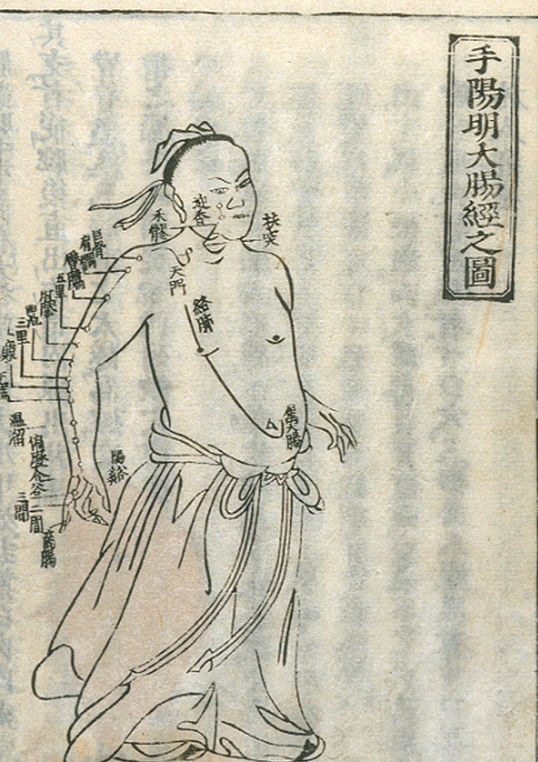 手陽明大腸經之圖
扶突
迎香
禾髎
天門
絡肺
巨骨
肩髃
臂臑
五里
肘髎
曲池
三里
上廉
下廉
溫溜
偏歷
合谷
陽谿
三間
二間
商陽
屬大腸